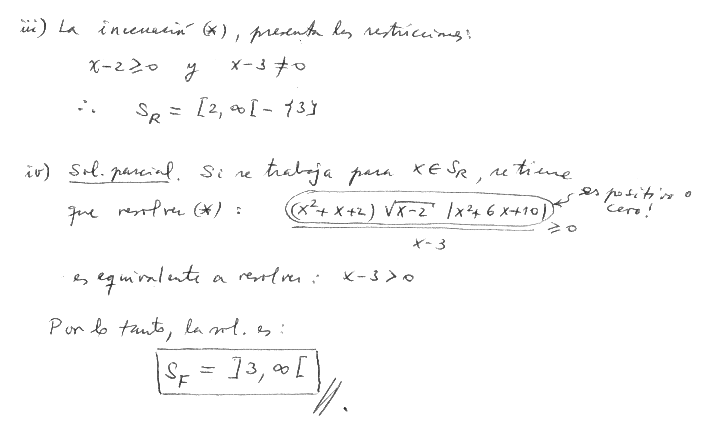 iii) La inecuación (*), presenta las restricciones:
x-2≥0 y x-3≠0
∴ S_R = [2, ∞[ - {3}
iv) Sol. parcial. Si se trabaja para x∈S_R, se tiene
que resolver (*) : ((x²+x+2) √(x-2) |x²+6x+10|)/(x-3) ≥0 es positivo o cero!
es equivalente a resolver : x-3>0
Por lo tanto, la sol. es :
S_F = ]3, ∞[ //.